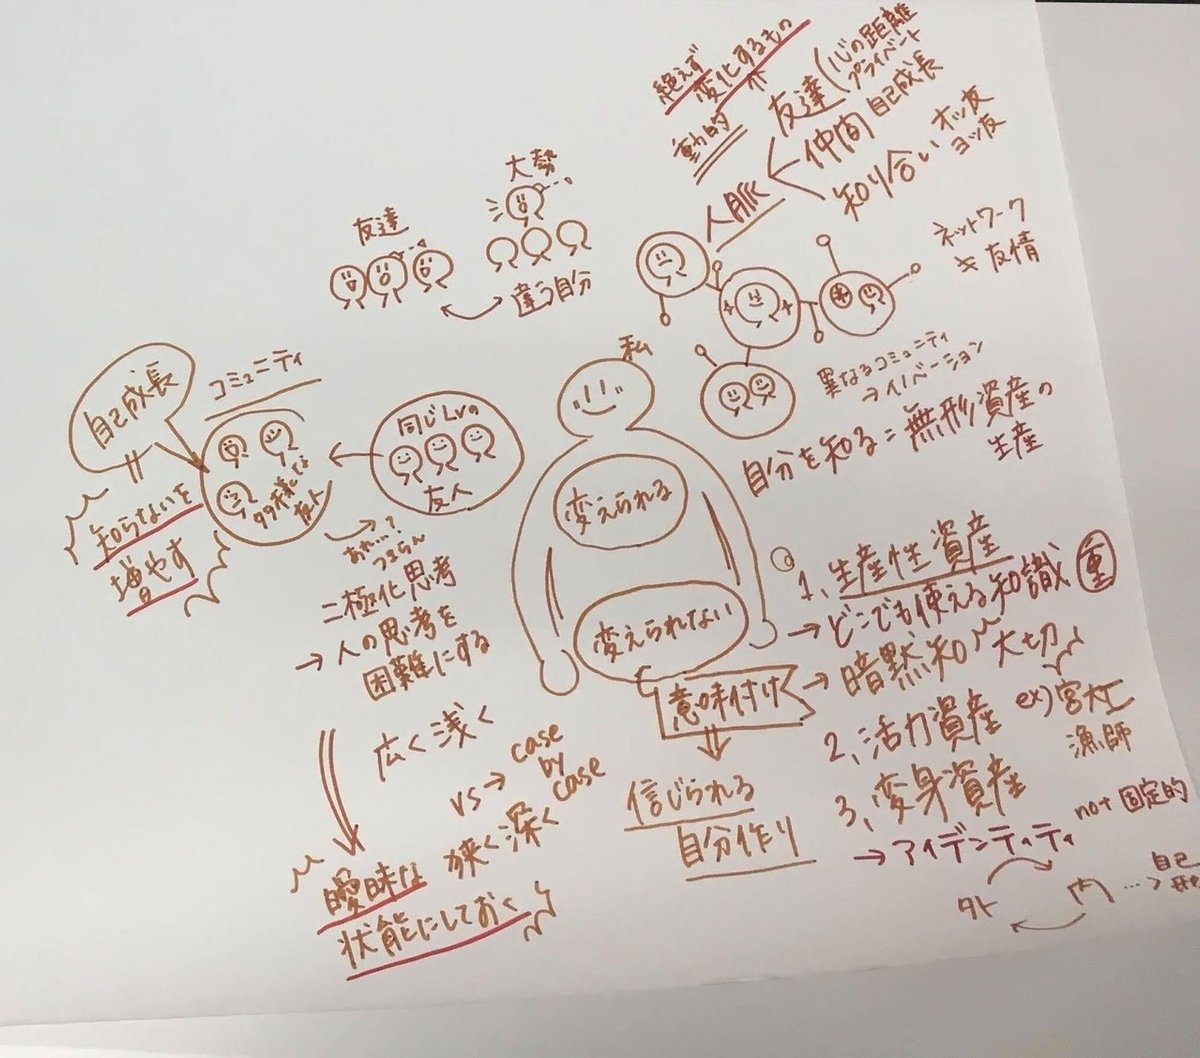 絶えず
変化するもの
動的
友達(心の距離
プライベント
人脈 仲間 自己成長
知り合い オッ友
ヨッ友
大勢
友達
違う自分
ネットワーク
≠ 友情
私
異なるコミュニティ
→イノベーション
自分を知る=無形資産の
生産
コミュニティ
自己成長
知らないを
増やす
多様な
友人
同じLvの
友人
あれ…?
つまらん
二極化思考
→人の思考を
困難にする
広く浅く
vs→case
by
case
狭く深く
曖昧な
状態にしておく
変えられる
変えられない
意味付け
信じられる
自分作り
1、生産性資産
→どこでも使える知識 重
→暗黙知 大切
ex)宮大工
漁師
2、活力資産
3、変身資産
→アイデンティティ not 固定的
外 内 …> 自己